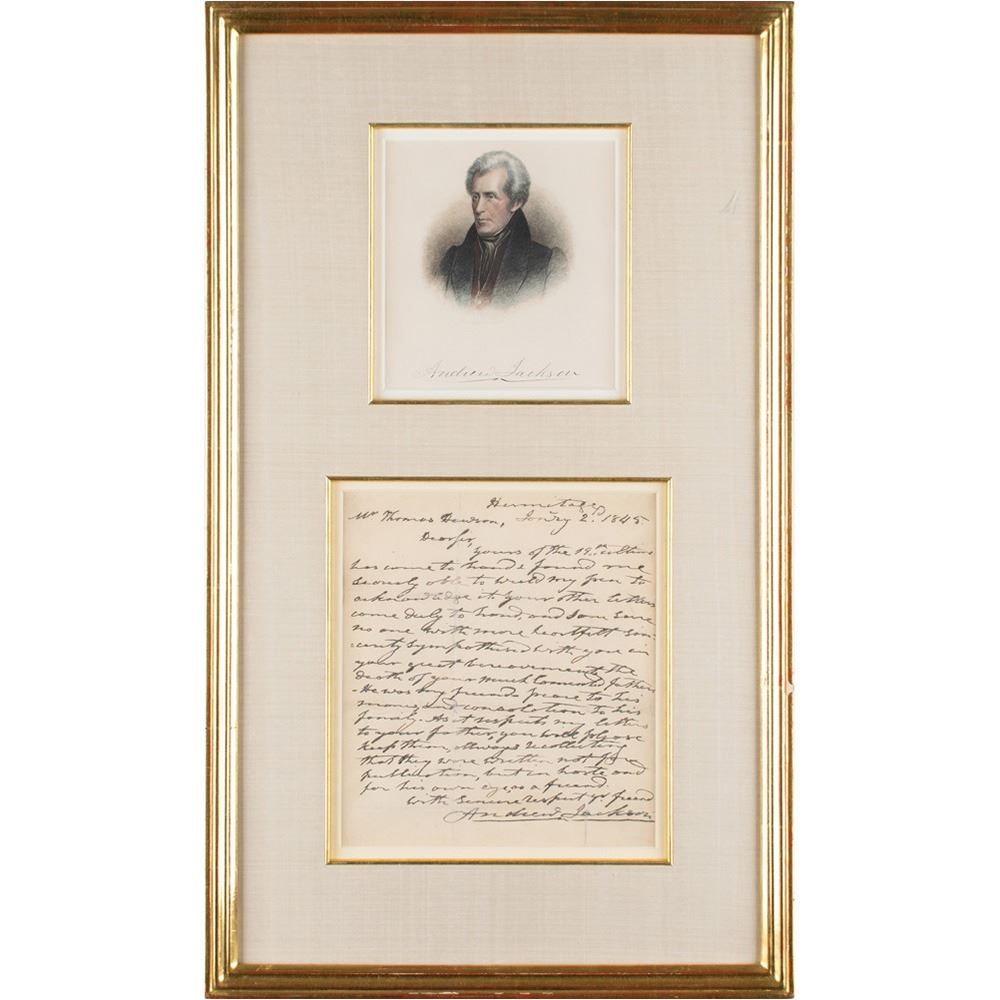 Andrew Jackson
Hermitage
Mr Thomas Dawson, Janry 2. 1845
Dear sir,
yours of the 19th ultimo
has come to hand & found me
scarcely able to wield my pen to
acknowledge it. your other letters
came duly to hand, and I am sure
no one with more heartfelt sin-
cerity sympathised with you in
your great bereavement, the
death of your much lamented father
He was my friend & peace to his
manes, and consolation to his
family. As it respects my letters
to your father, you will please
keep them, always recollecting
that they were written not for
publication, but in haste and
for his own eye, as a friend.
with sincere respect yr friend
Andrew Jackson